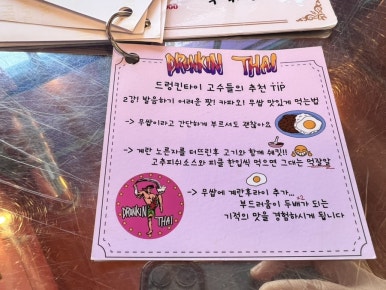 DRUNKIN THAI
드렁킨타이 고수들의 추천 TIP
2강! 발음하기 어려운 팟! 카파오! 무쌉 맛있게 먹는법
-> 무쌉이라고 간단하게 부르셔도 괜찮아요
-> 계란 노른자를 터뜨린후 고기와 함께 쉐킷!!
고추피쉬소스와 피클 한입씩 먹으면 그대는 먹잘알
-> 무쌉에 계란후라이 추가...
x2
부드러움이 두배가 되는
기적의 맛을 경험하시게 됩니다
DRUNKIN
THAI